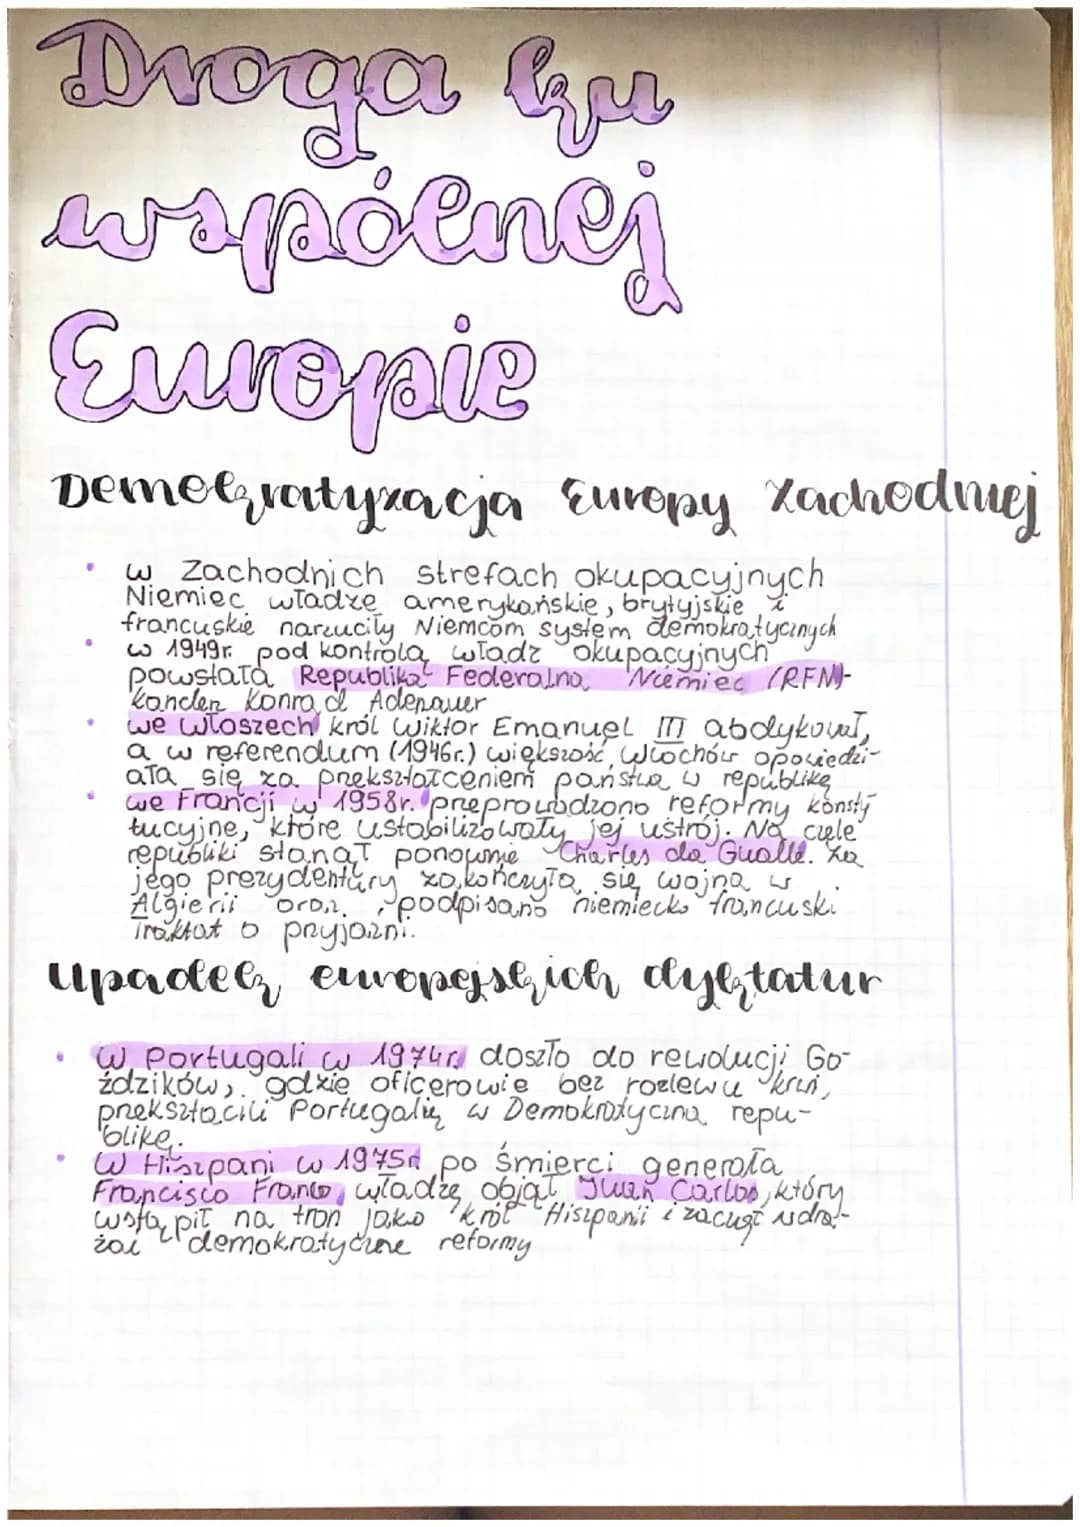 Droga ku
wspólnej
Europie
Demokratyzacja Europy Zachodniej
• w Zachodnich strefach okupacyjnych
Niemiec władze amerykańskie, brytyjskie i
francuskie narzuciły Niemcom system demokratycznych
• w 1949r. pod kontrolą władz okupacyjnych
powstała Republika Federalna Niemiec (RFN)-
kanclerz Konrad Adenauer
• we Włoszech król Wiktor Emanuel III abdykował,
a w referendum (1946r.) większość Włochów opowiedzi-
ała się za przekształceniem państwa w republikę
• we Francji w 1958r. przeprowadzono reformy konsty
tucyjne, które ustabilizowały jej ustrój. Na czele
republiki stanął ponownie Charles de Gualle. Za
jego prezydentury zakończyła się wojna w
Algierii oraz podpisano niemiecko francuski
Traktat o przyjaźni.
Upadek europejskich dyktatur
• W Portugali w 1974r. doszło do rewolucji Go-
ździków, gdzie oficerowie bez rozlewu krwi,
przekształcili Portugalię w Demokratyczną repu-
blikę.
• W Hiszpani w 1975r. po śmierci generała
Francisco Franco, władzę objął Juan Carlos, który
wstąpił na tron jako król Hiszpanii i zaczął wdra-
żać demokratyczne reformy